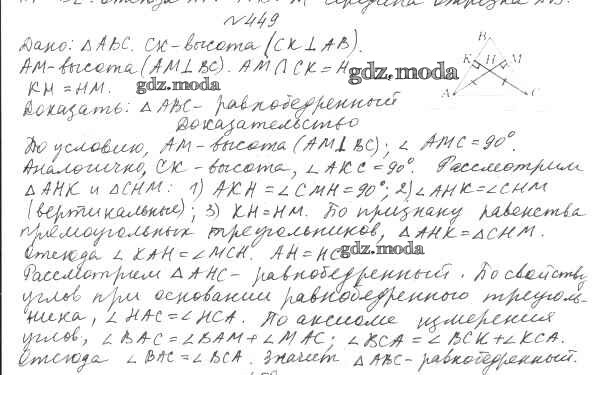 №449
Дано: △ABC. CK-высота (CK⊥AB).
AM-высота (AM⊥BC). AM∩CK=H
KH=HM.
gdz.moda
gdz.moda
B
K H M
A C
Доказать: △ABC- равнобедренный
Доказательство
По условию, AM-высота (AM⊥BC); ∠AMC=90°.
Аналогично, CK-высота, ∠AKC=90°. Рассмотрим
△AHK и △CHM: 1) AKH=∠CMH=90°; 2)∠AHK=∠CHM
(вертикальные); 3) KH=HM. По признаку равенства
прямоугольных треугольников, △AHK=△CHM.
Отсюда ∠KAH=∠MCH. AH=HC
gdz.moda
Рассмотрим △AHC- равнобедренный. По свойству
углов при основании равнобедренного треуголь-
ника, ∠HAC=∠HCA. По аксиоме измерения
углов, ∠BAC=∠BAM+∠MAC; ∠BCA=∠BCK+∠KCA.
Отсюда ∠BAC=∠BCA. Значит △ABC-равнобедренный.